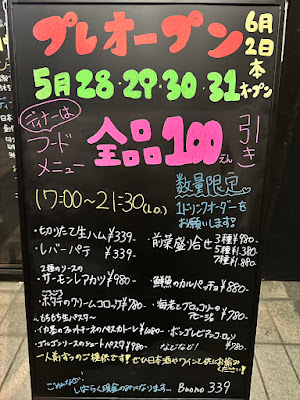 プレオープン
6月2日本オープン
5月28・29・30・31
ディナーは
フードメニュー
全品100えん引き
17:00〜21:30(L.O.)
数量限定
1ドリンクオーダーを
お願いします
・切りたて生ハム ¥339-
・レバーパテ ¥339-
・前菜盛り合せ 3種¥980-
5種¥1,380-
7種¥1,880-
2種のソースの
・サーモンレアカツ ¥980-
・鮮魚のカルパッチョ ¥880-
・ホタテのクリームコロッケ ¥780-
・海老とブロッコリーの
アヒージョ ¥780-
〜もちもち生パスタ〜
・ボンゴレビアンコロッソ
¥780-
・ゴルゴンソースのショートパスタ ¥980-
などなど!
一人前ずつのご提供です!ぜひ日本酒やワインと供にお愉み
ください!
ごめんなさい
しばらく現金のみになります…
Buono 339